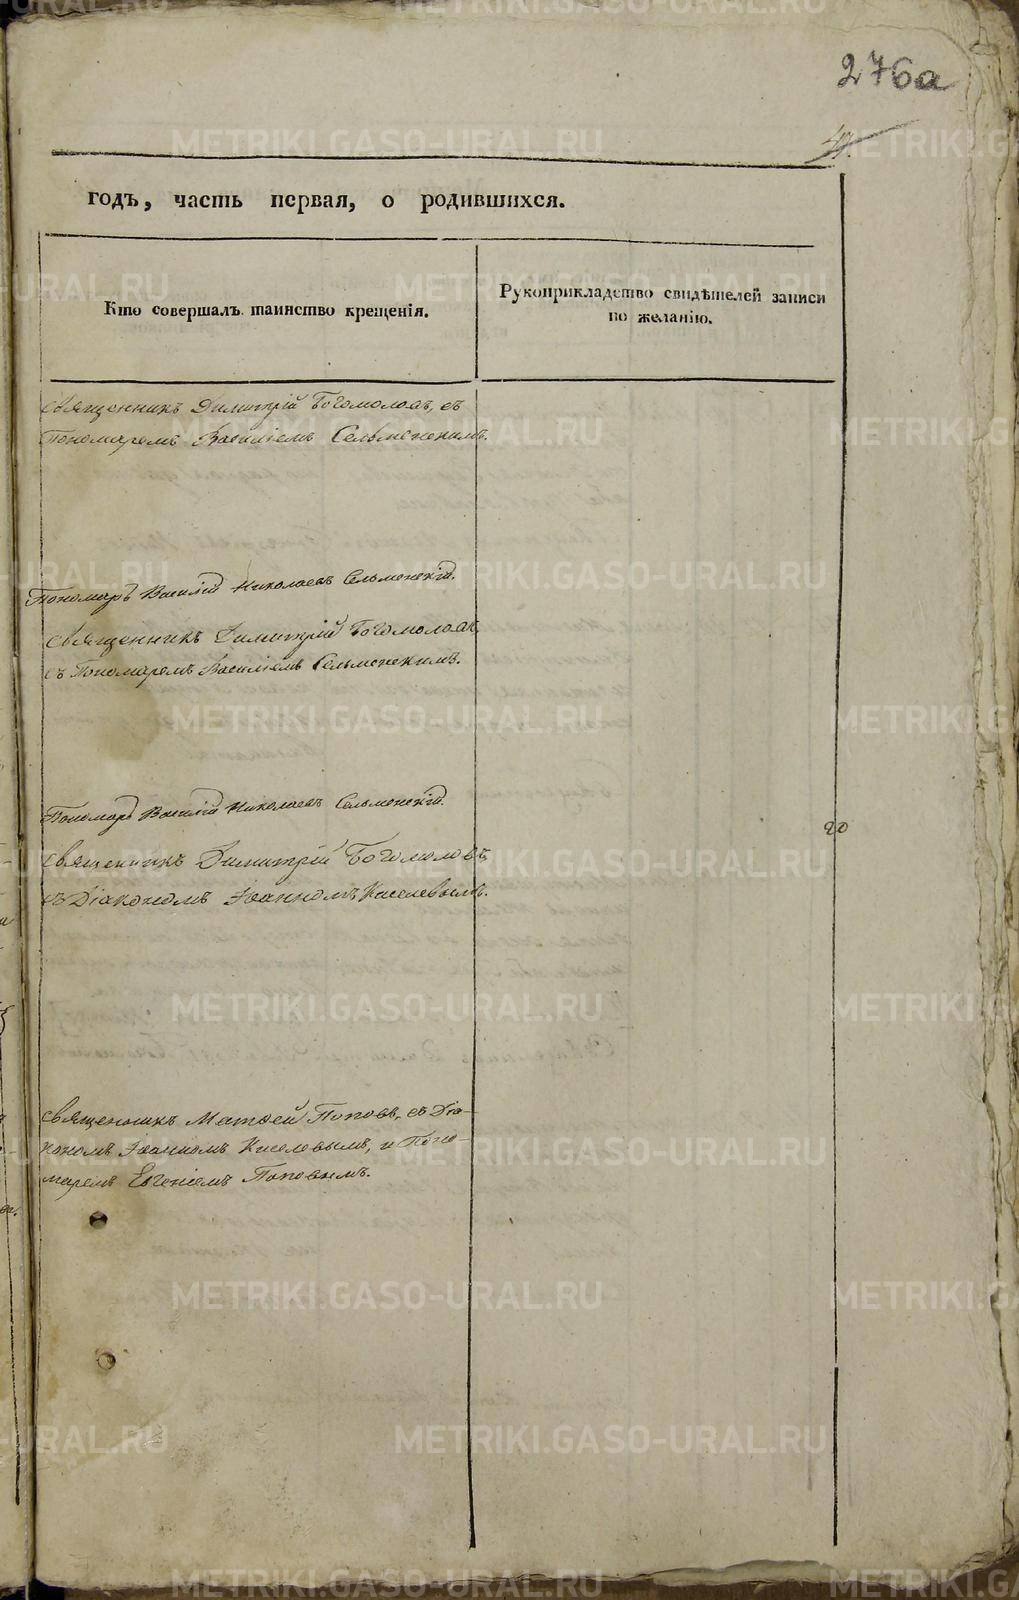 276а
годъ, часть первая, о родившихся.
Кто совершалъ таинство крещенія.
Рукоприкладство свидѣтелей записи
по желанію.
священникъ Димитрій Богомоловъ, съ
Пономаремъ Василіемъ Сельменскимъ.
Пономарь Василій Николаевъ Сельменскій.
священникъ Димитрій Богомоловъ,
съ Пономаремъ Василіемъ Сельменскимъ.
Пономарь Василій Николаевъ Сельменскій.
20
священникъ Димитрій Богомоловъ,
съ Діакономъ Іоанномъ Киселевымъ.
священникъ Матѳей Поповъ, съ Діа-
кономъ Іоанномъ Киселевымъ, и Поно-
маремъ Евгеніемъ Поповымъ.
METRIKI.GASO-URAL.RU